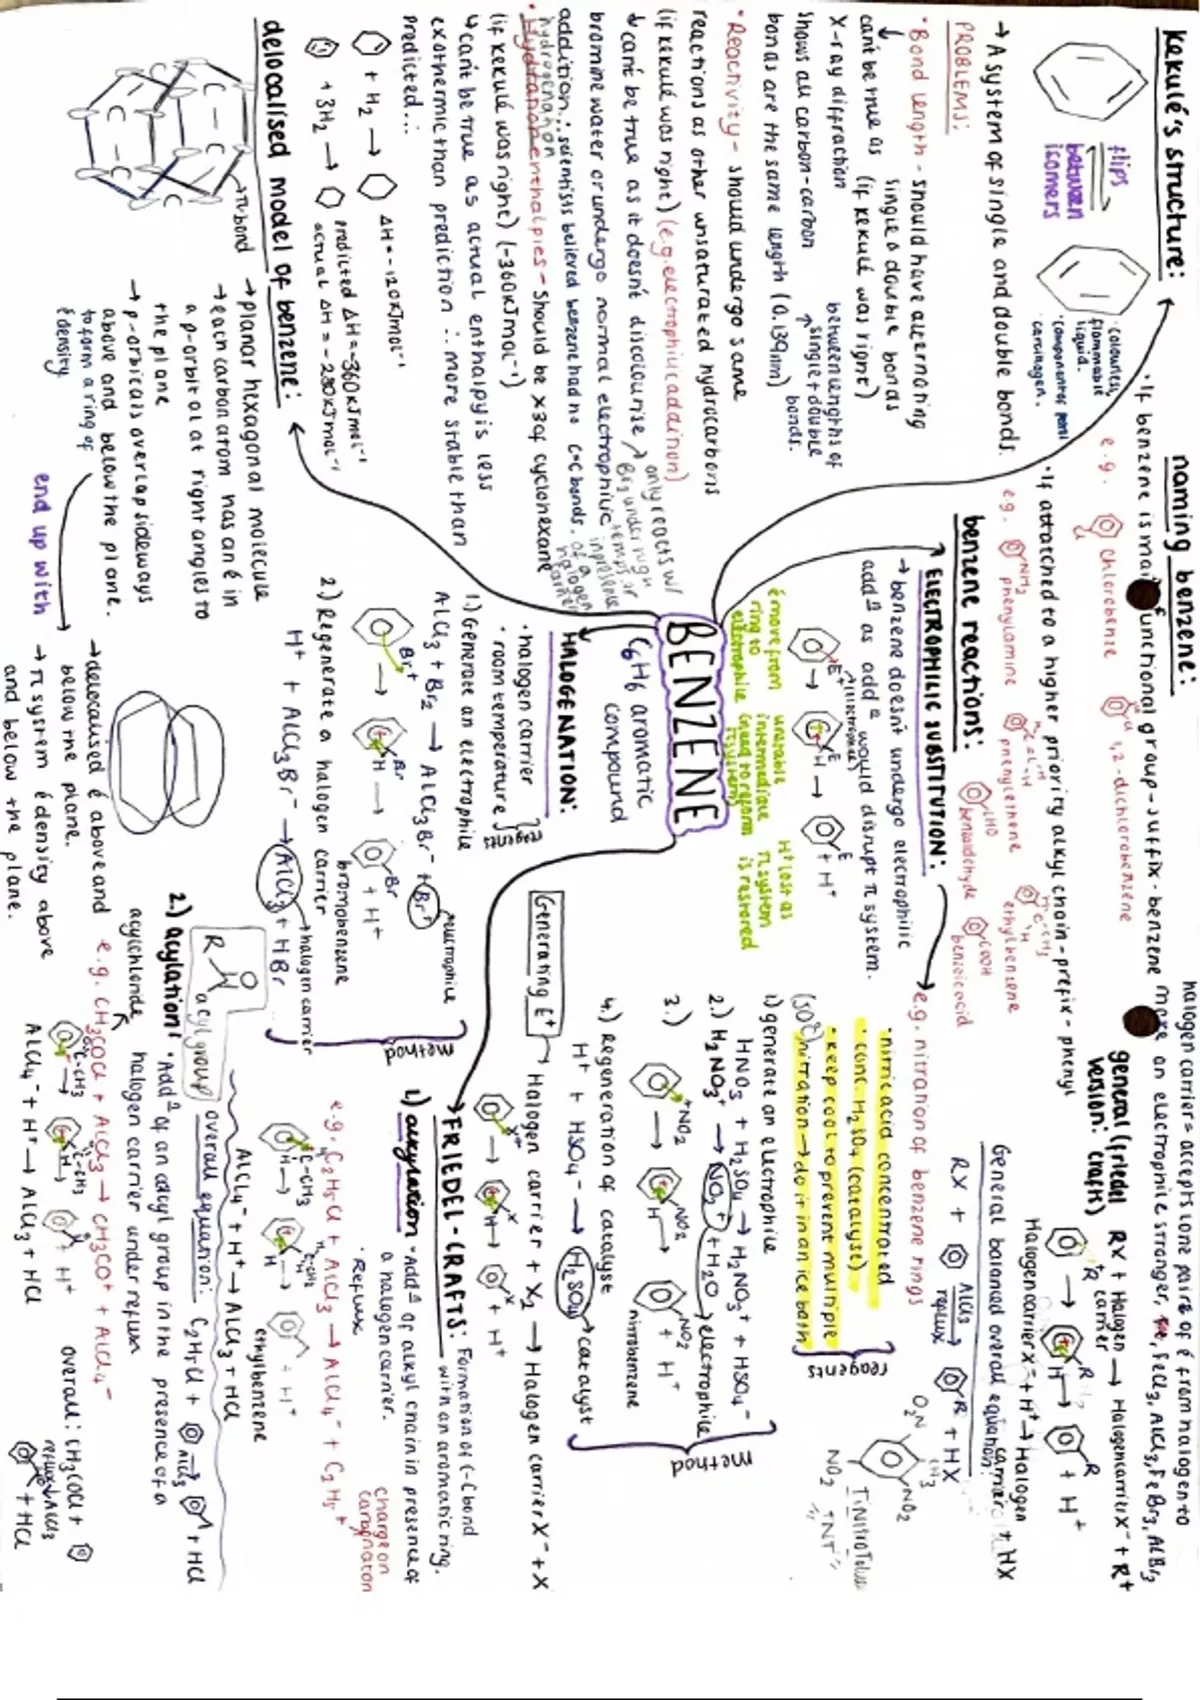 Kekulé's structure:
flips
between
isomers
· colourless,
flammable
liquid.
· carcinogen.
→ A system of single and double bonds.
PROBLEMS:
· Bond length - should have alternating
single & double bonds
(if kekulé was right)
can't be true as
X-ray diffraction
shows all carbon-carbon
bonds are the same length (0.139nm)
between lengths of
single + double
bonds.
· Reactivity - should undergo same
reactions as other unsaturated hydrocarbons
(if kekulé was right) (e.g. electrophilic addition)
↳ can't be true as it doesn't discolourise
bromine water or undergo normal electrophilic
addition ∴ scientists believed benzene had no C=C bonds.
only reacts w/
Br₂ under high
temps or
in presence
of a
halogen
carrier
hydrogenation
· Hydration enthalpies - Should be x3 of cyclohexane
(if kekulé was right) (-360kJmol⁻¹)
↳ can't be true as actual enthalpy is less
exothermic than prediction ∴ more stable than
predicted...
+ H₂ → ΔH = -120kJmol⁻¹
+ 3H₂ → predicted ΔH = -360kJmol⁻¹
actual ΔH = -280kJmol⁻¹
delocalised model of benzene:
π-bond
C C C C
→ planar hexagonal molecule
→ each carbon atom has an é in
a p-orbital at right angles to
the plane
→ p-orbitals overlap sideways
above and below the plane.
to form a ring of
é density
end up with
→ delocalised é above and
below the plane.
→ π system é density above
and below the plane.
naming benzene:
· If benzene is main functional group - suffix - benzene
e.g. Cl chlorobenzene Cl Cl 1,2-dichlorobenzene
· If attatched to a higher priority alkyl chain - prefix - phenyl
e.g. NH₂ phenylamine phenylethene ethylbenzene
benzene reactions:
CHO benzaldehyde COOH benzoic acid
ELECTROPHILIC SUBSTITUTION:
→ benzene doesn't undergo electrophilic
addⁿ as addⁿ would disrupt π system.
E⁺ (electrophile) → E H → E + H⁺
é move from
ring to
electrophile
unstable
intermediate
(need to reform
π system)
H⁺ lost as
π system
is restored
BENZENE
C₆H₆ aromatic
compound
HALOGENATION:
· halogen carrier
· room temperature
reagents
1.) Generate an electrophile
AlCl₃ + Br₂ → AlCl₃Br⁻ + Br⁺
2.) Regenerate a halogen carrier
Br⁺ → Br H → Br + H⁺
bromobenzene
H⁺ + AlCl₃Br⁻ → AlCl₃ + HBr
halogen carrier
method
halogen carrier = accepts lone pair of é from halogen to
make an electrophile stronger, FeCl₃, AlCl₃, FeBr₃, AlBr₃
general (friedel
crafts)
version:
RX + Halogen
carrier → Halogen carrier X⁻ + R⁺
⁺R → R H → R + H⁺
Halogen carrier X⁻ + H⁺ → Halogen
carrier + HX
General balanced overall equation:
RX + AlCl₃
reflux → R + HX
e.g. nitration of benzene rings
· nitric acid concentrated
· conc. H₂SO₄ (catalyst)
· keep cool to prevent multiple
(50°C) nitration → do it in an ice bath
reagents
O₂N CH₃ NO₂
NO₂
"TNT"
1) generate an electrophile
HNO₃ + H₂SO₄ → H₂NO₃⁺ + HSO₄⁻
2.) H₂NO₃⁺ → NO₂⁺ + H₂O
electrophile
3.) ⁺NO₂ → NO₂ H → NO₂ + H⁺
nitrobenzene
4.) Regeneration of catalyst
H⁺ + HSO₄⁻ → H₂SO₄
catalyst
method
Generating E⁺
Halogen carrier + X₂ → Halogen carrier X⁻ + X
X⁺ → X H → X + H⁺
FRIEDEL-CRAFTS: Formation of C-C bond
with an aromatic ring.
1.) alkylation · Addⁿ of alkyl chain in presence of
a halogen carrier.
· Reflux
e.g. C₂H₅Cl + AlCl₃ → AlCl₄⁻ + C₂H₅⁺
charge on
ethylbenzene
AlCl₄⁻ + H⁺ → AlCl₃ + HCl
overall equation: C₂H₅Cl + AlCl₃ → + HCl
R O
acyl group
2.) acylation: · Addⁿ of an acyl group in the presence of a
halogen carrier under reflux
acyl chloride
e.g. CH₃COCl + AlCl₃ → CH₃CO⁺ + AlCl₄⁻
AlCl₄⁻ + H⁺ → AlCl₃ + HCl
overall: CH₃COCl +
reflux AlCl₃
+ HCl